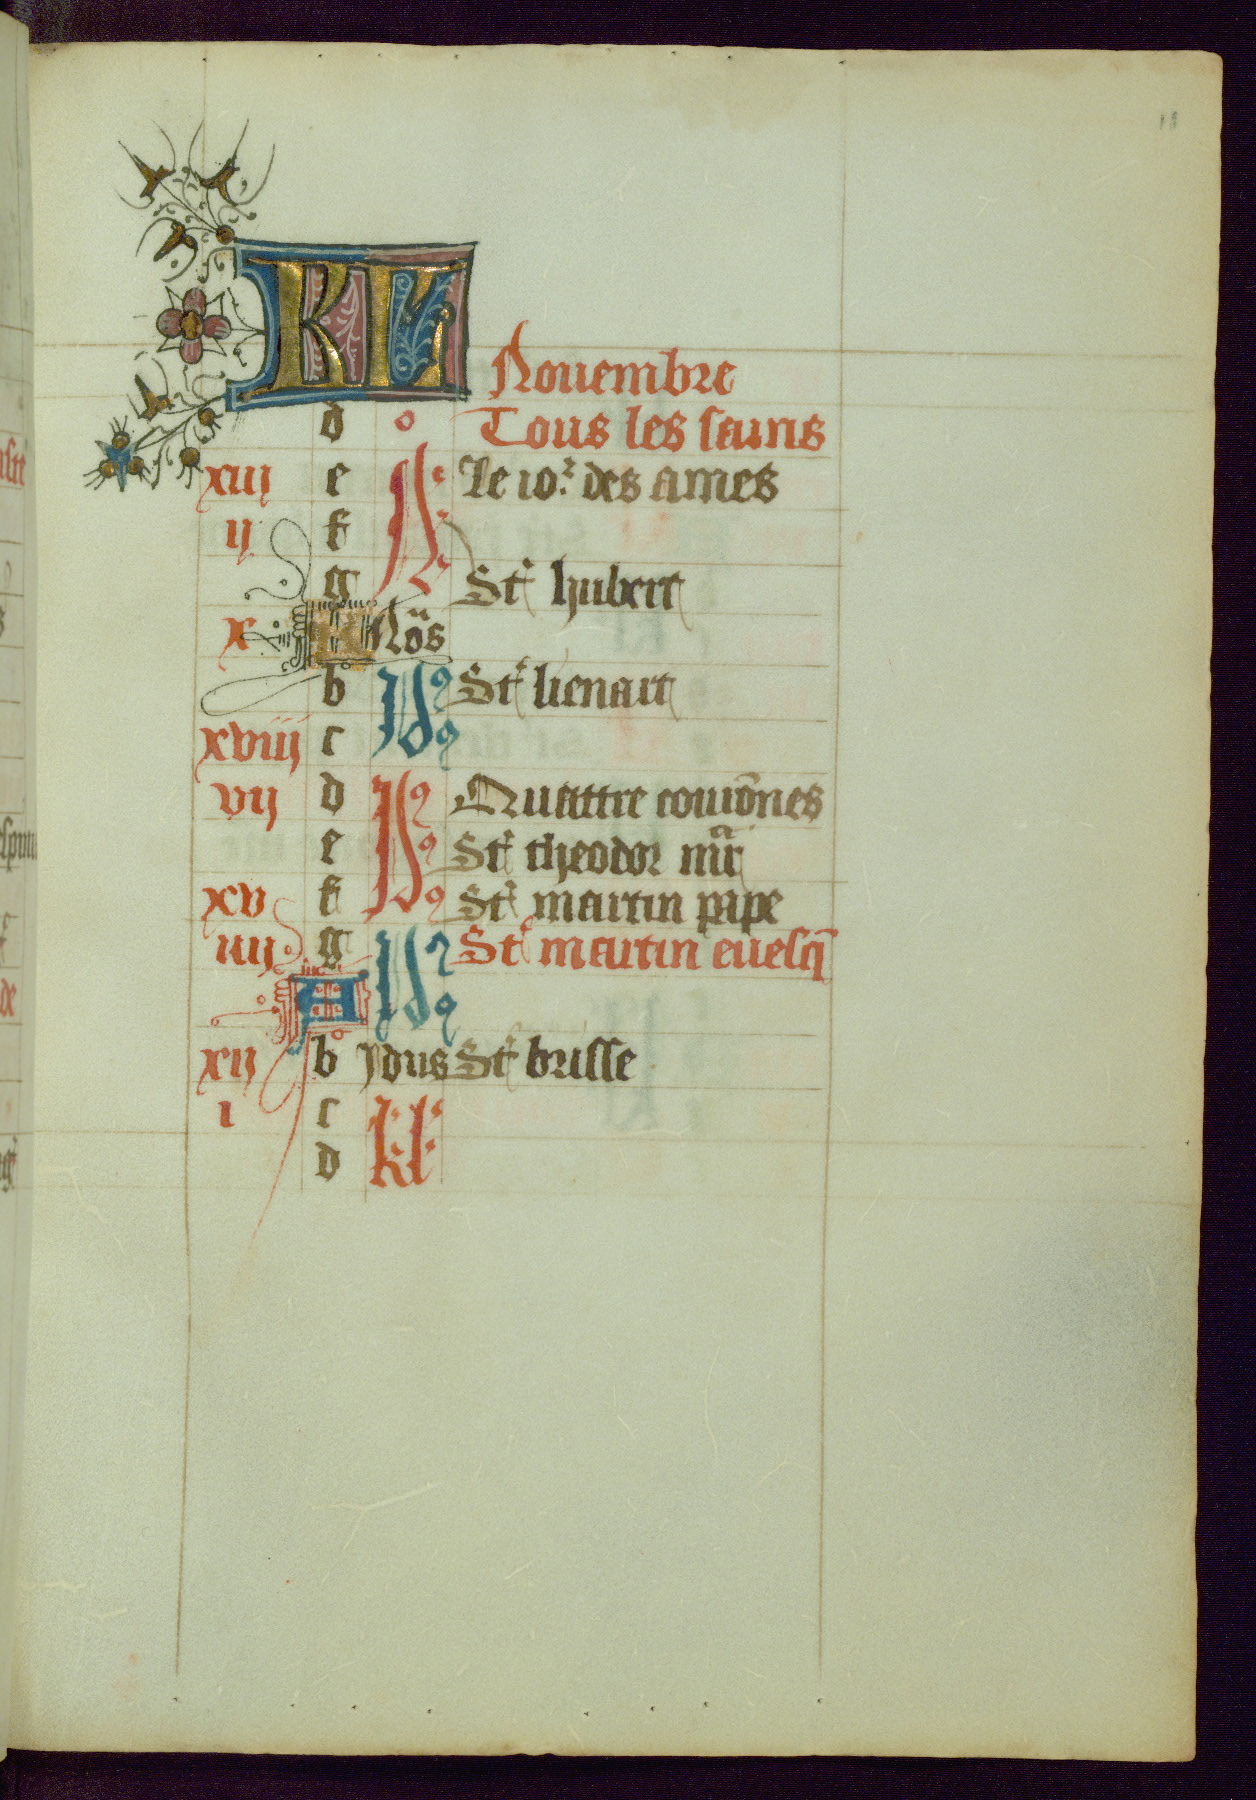 11
KL
Nouembre
d Tous les sains
xiij e N Le ior des ames
ij f
g St hubert
x A Nōs
b Id St lienart
xviij c
vij d Id Quattre couiōnes
e St theodor mr
xv f St martin pape
iiij g Id St martin euesq̄
A
xij b Idus St brisse
i c kl
d